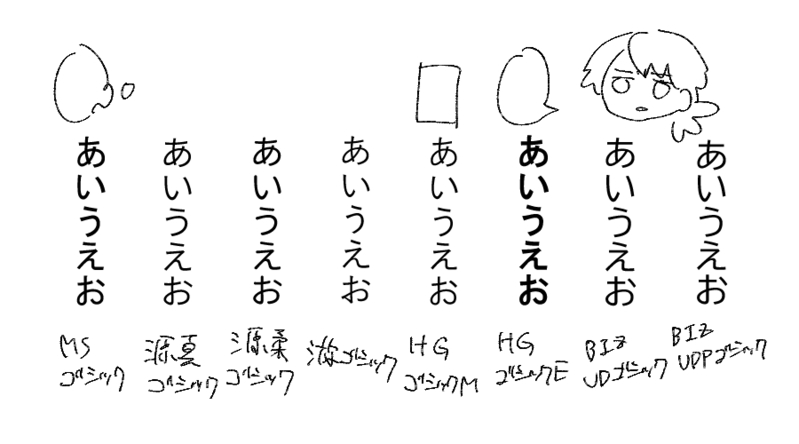 あいうえお
あいうえお
あいうえお
あいうえお
あいうえお
あいうえお
あいうえお
あいうえお
MS
ゴシック
源真
ゴシック
源柔
ゴシック
游ゴシック
HG
ゴシックM
HG
ゴシックE
BIZ
UDゴシック
BIZ
UDPゴシック